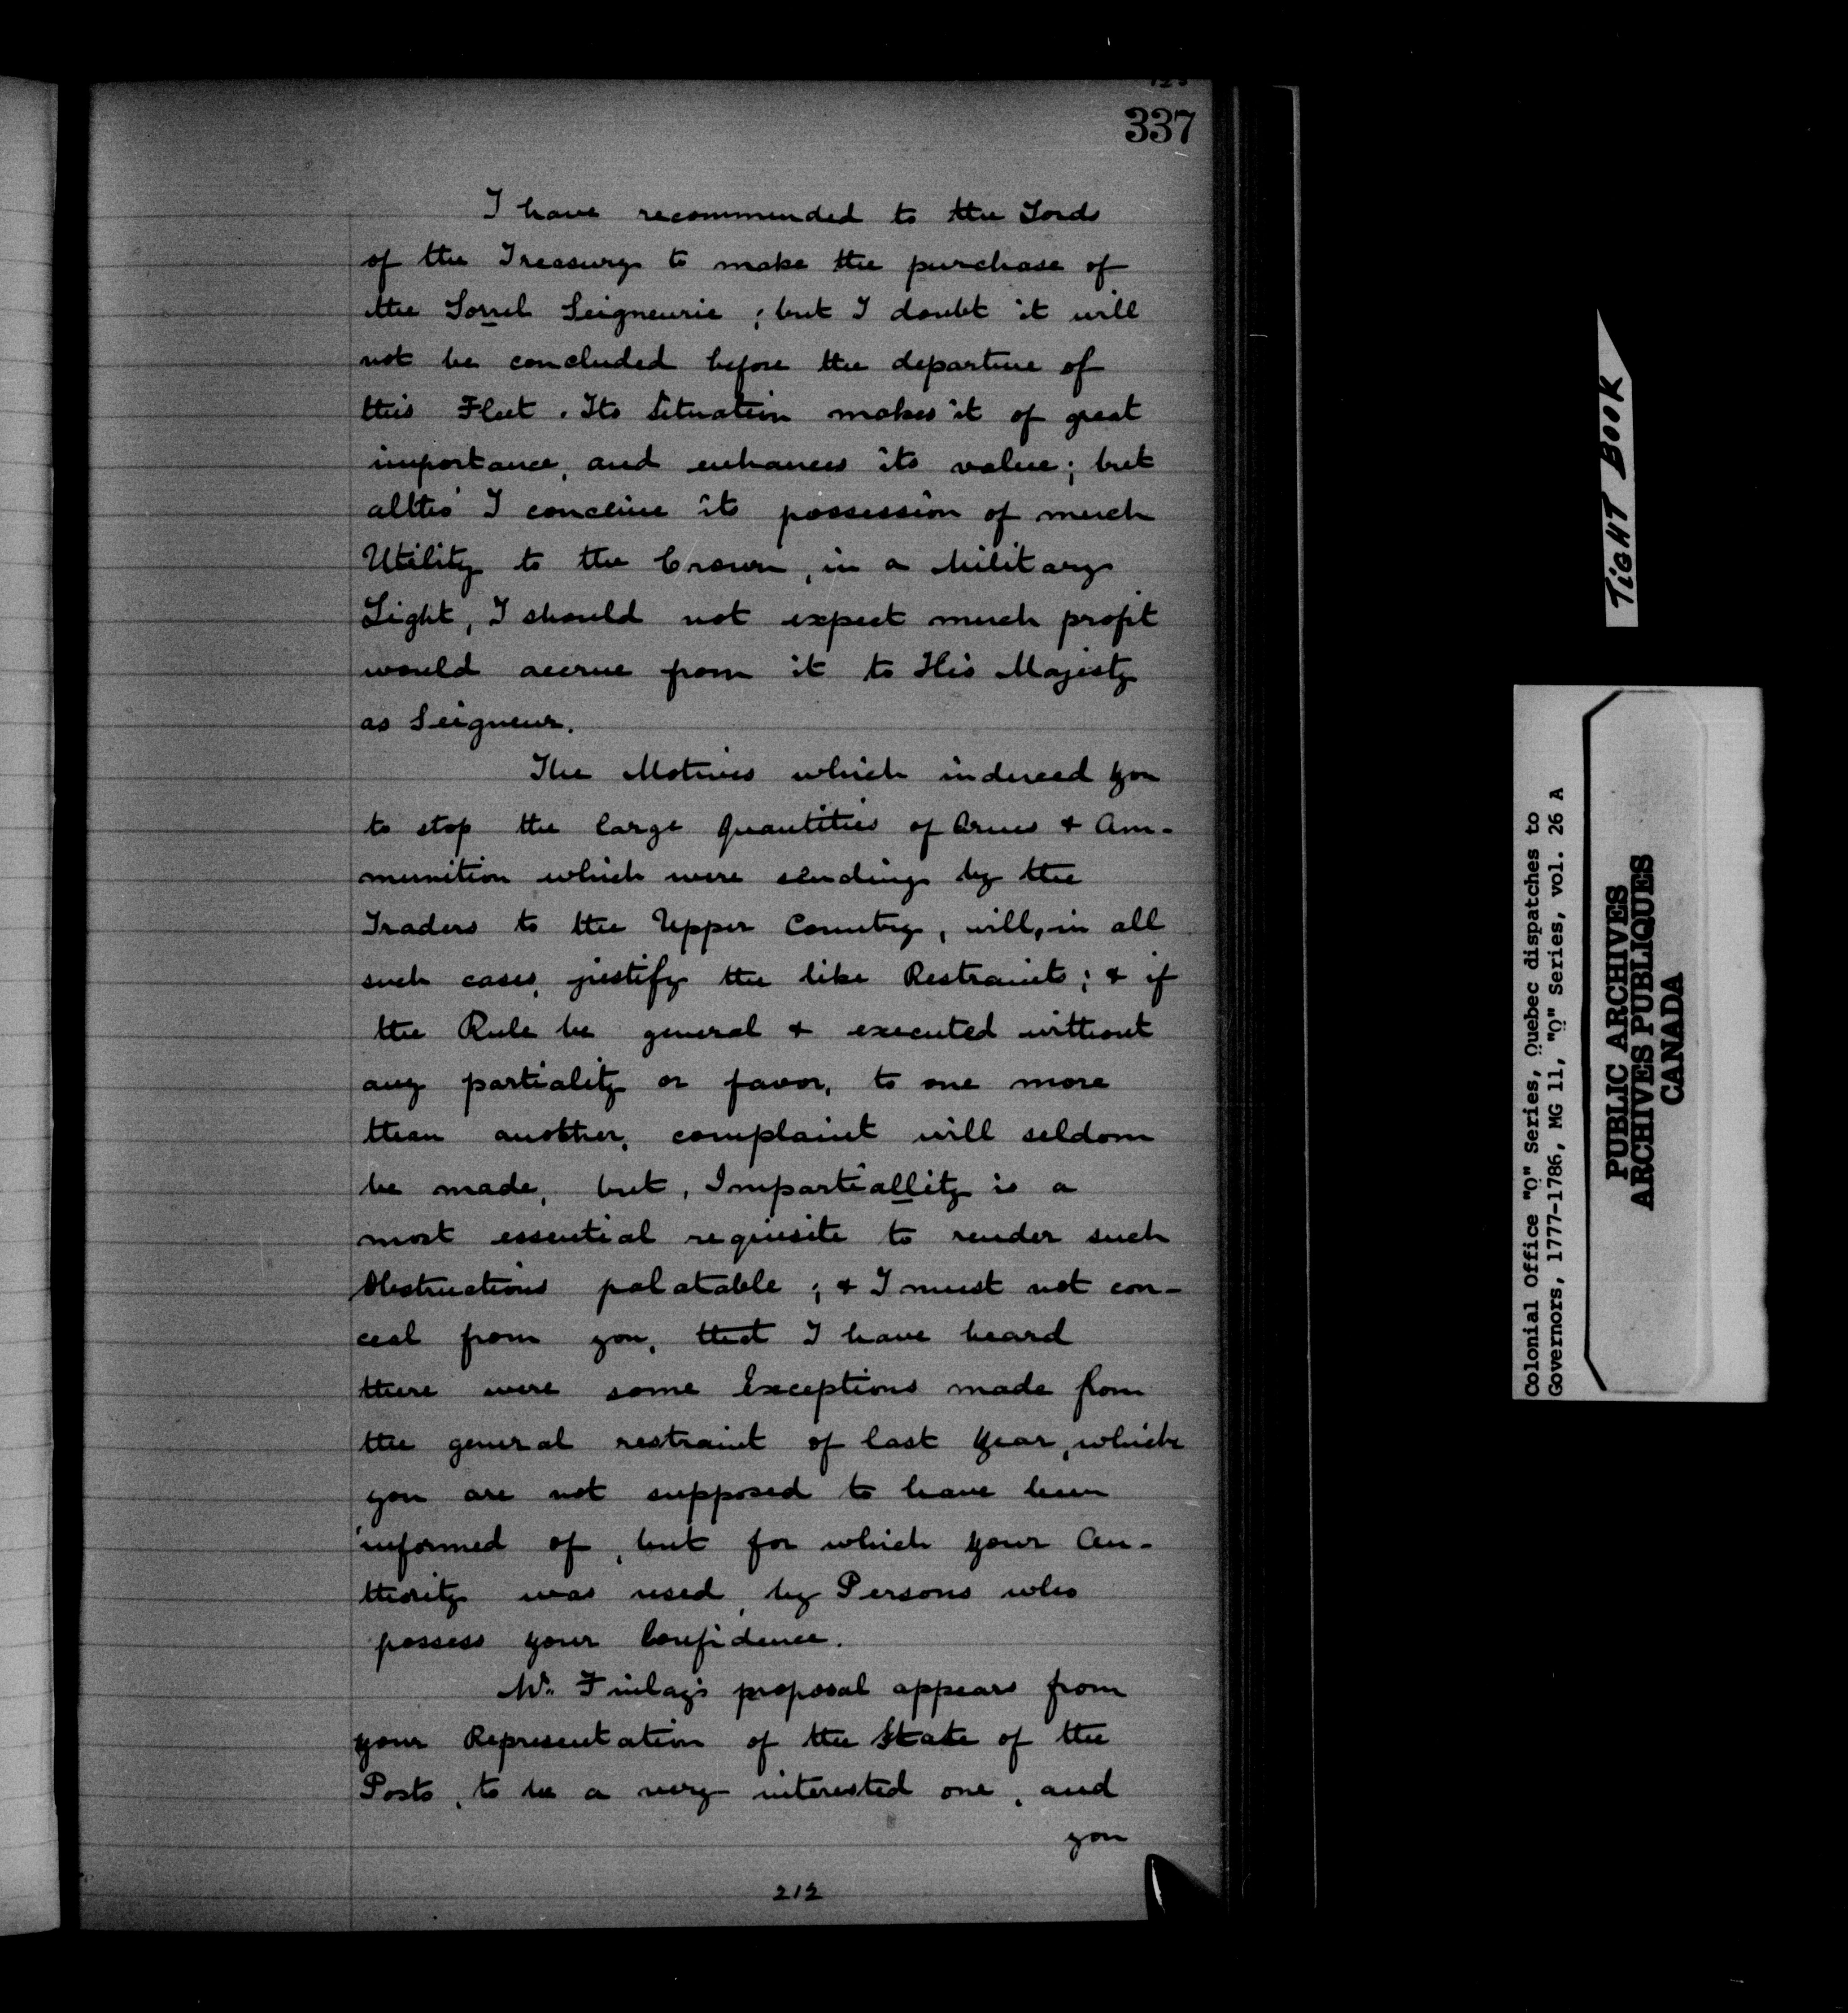 337
I have recommended to the Lords
of the Treasury to make the purchase of
the Sorrel Seigneurie ; but I doubt it will
not be concluded before the departure of
this Fleet . Its Situation makes it of great
importance, and enhances its value ; but
altho' I conceive its possession of much
Utility to the Crown , in a Military
Light , I should not expect much profit
would accrue from it to His Majesty
as Seigneur .
The Motives which induced you
to stop the large Quantities of Arms & Am-
munition which were sending by the
Traders to the Upper Country , will, in all
such cases, justify the like Restraints ; & if
the Rule be general & executed without
any partiality or favor, to one more
than another, complaint will seldom
be made, but , Impartiallity is a
most essential requisite to render such
Obstructions palatable ; & I must not con-
ceal from you, that I have heard
there were some Exceptions made from
the general restraint of last Year , which
you are not supposed to have been
informed of , but for which your Au-
thority was used, by Persons who
possess your Confidence .
Mr. Finlay's proposal appears from
your Representation of the State of the
Posts , to be a very interested one , and
you
212
TIGHT BOOK
Colonial Office "Q" Series, Quebec dispatches to
Governors, 1777-1786, MG 11, "Q" Series, vol. 26 A
PUBLIC ARCHIVES
ARCHIVES PUBLIQUES
CANADA